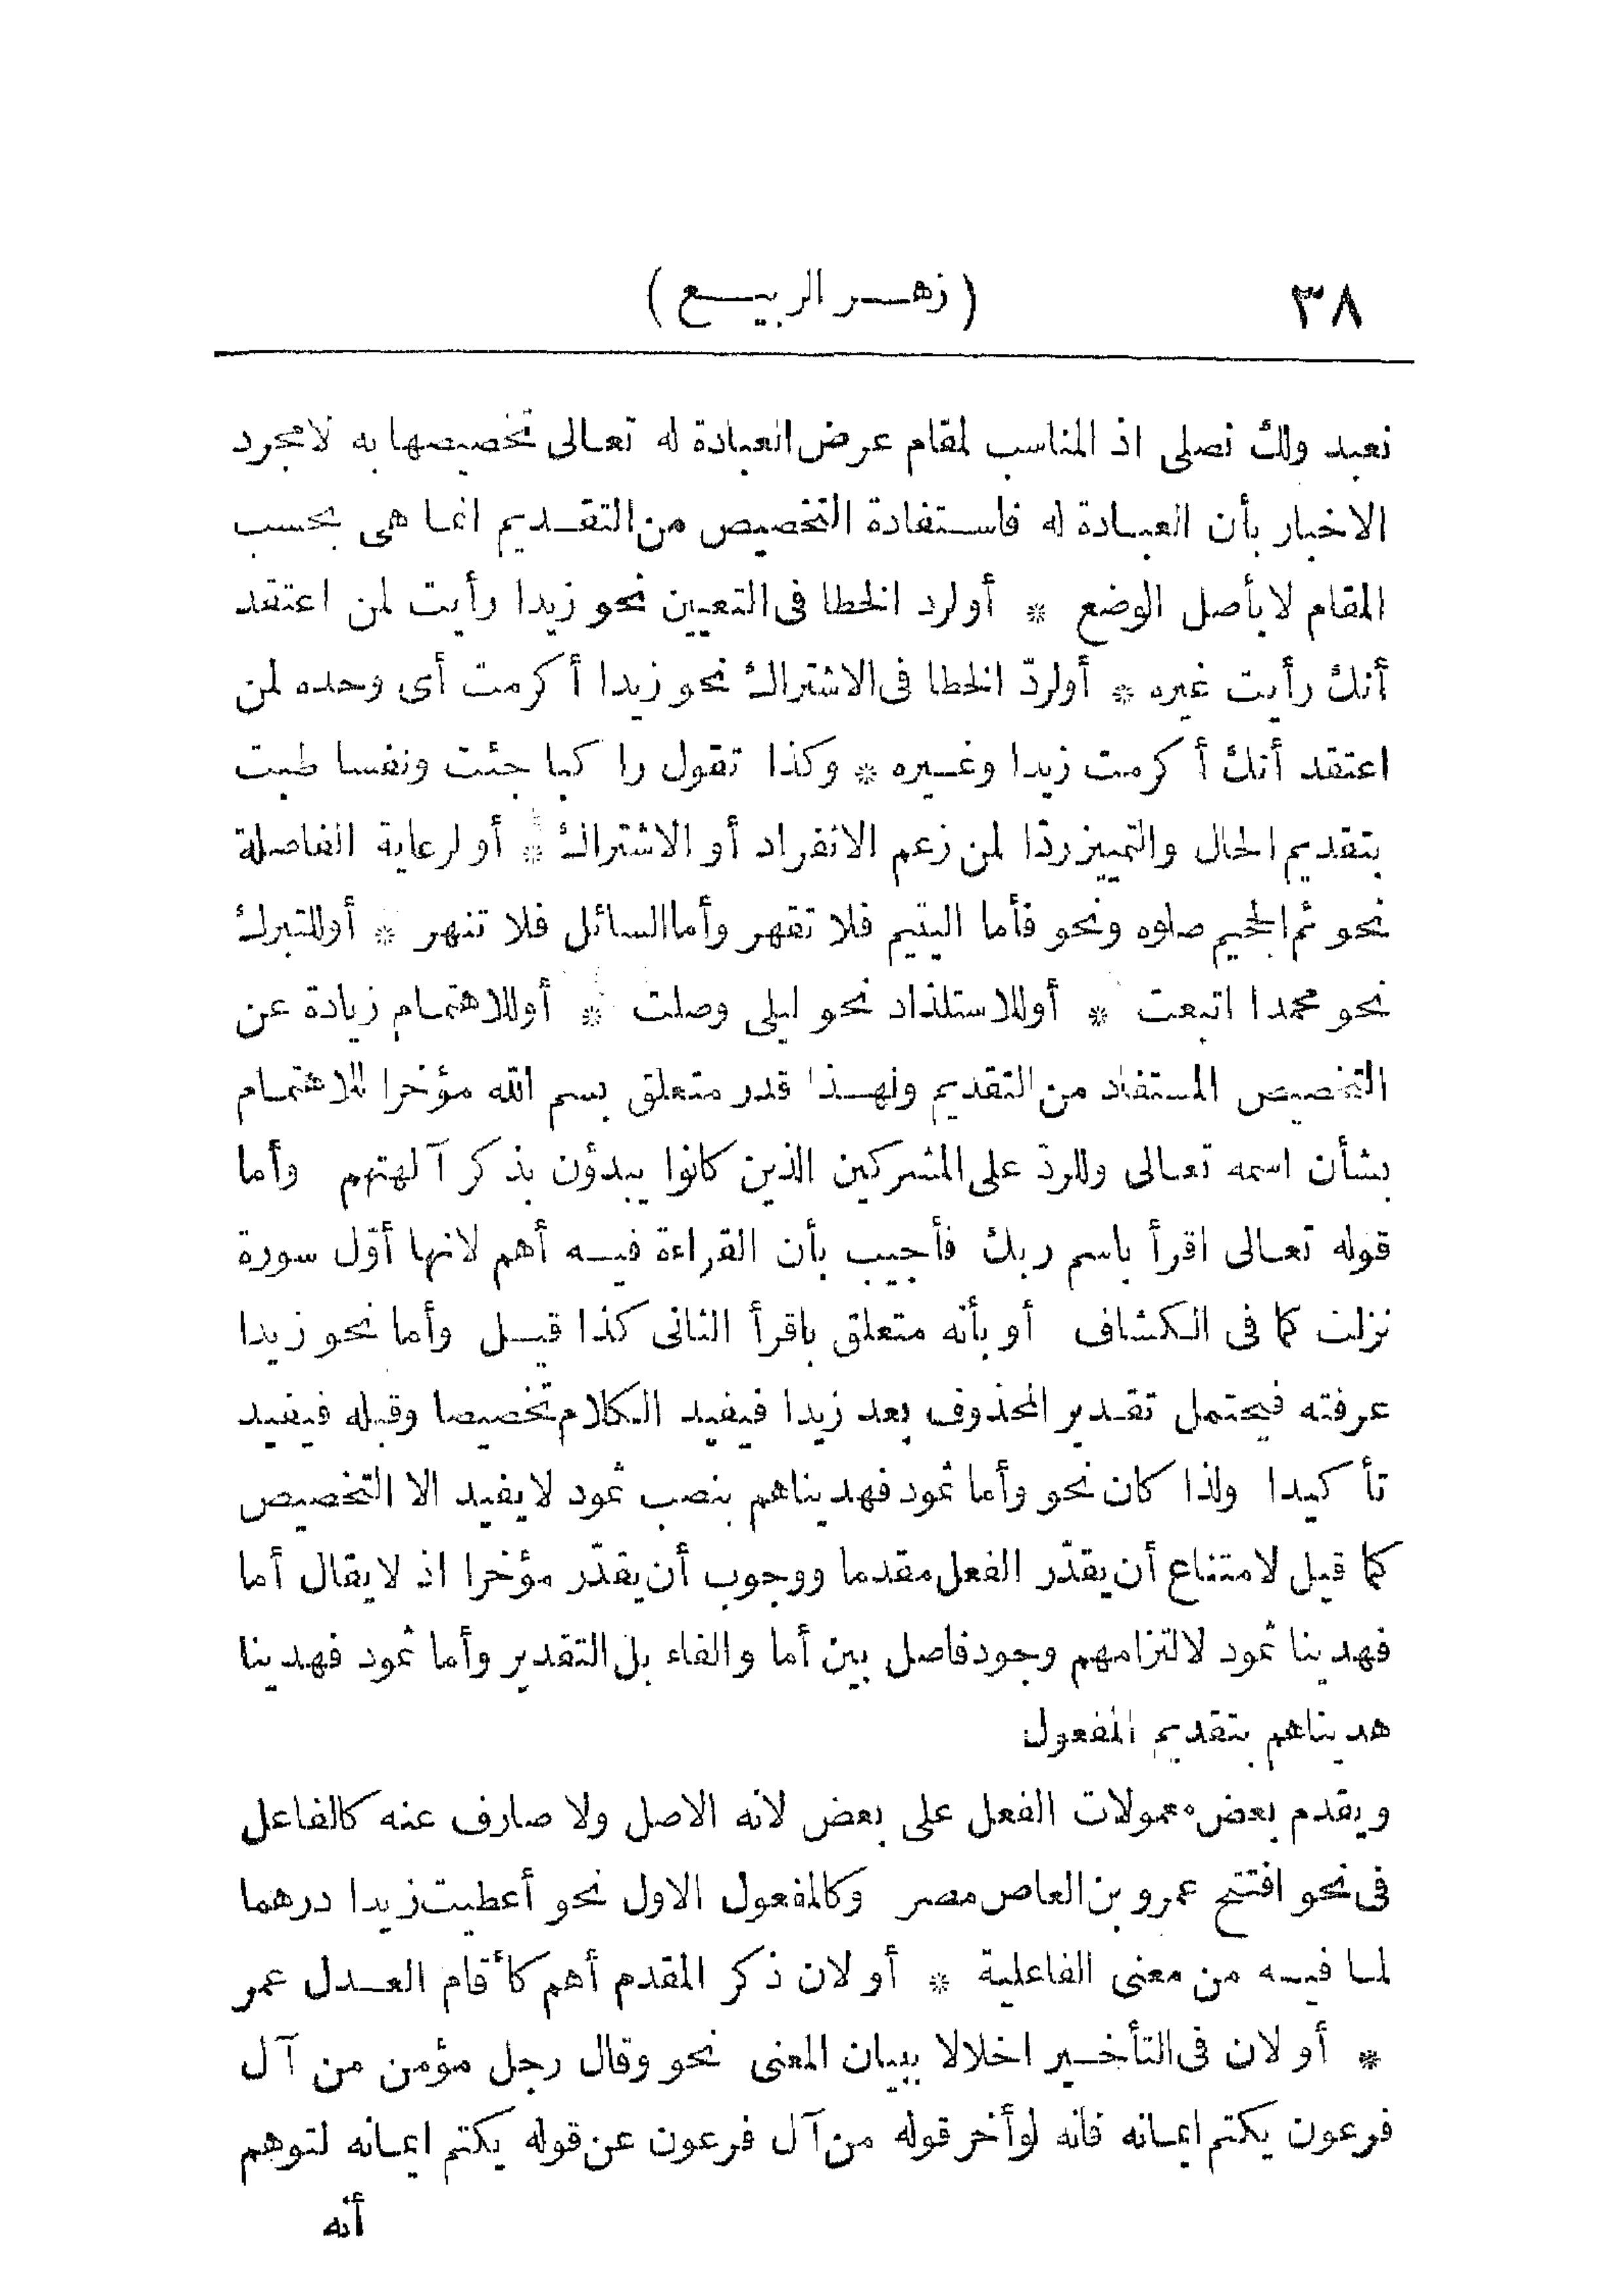 ٣٨ (زهر الربيع)
نعبد ولك نصلى اذ المناسب لمقام عرض العبادة له تعالى تخصيصها به لا مجرد
الاخبار بأن العبادة له فاستفادة التخصيص من التقديم انما هى بحسب
المقام لا بأصل الوضع * أو لرد الخطا فى التعيين نحو زيدا رأيت لمن اعتقد
أنك رأيت غيره * أو لردّ الخطا فى الاشتراك نحو زيدا أكرمت أى وحده لمن
اعتقد أنك أكرمت زيدا وغيره * وكذا تقول راكبا جئت ونفسا طبت
بتقديم الحال والتمييز ردّا لمن زعم الانفراد أو الاشتراك * أو لرعاية الفاصلة
نحو ثم الجحيم صلوه ونحو فأما اليتيم فلا تقهر وأما السائل فلا تنهر * أو للتبرك
نحو محمدا اتبعت * أو للاستلذاد نحو ليلى وصلت * أو للاهتمام زيادة عن
التخصيص المستفاد من التقديم ولهذا قدر متعلق بسم الله مؤخرا للاهتمام
بشأن اسمه تعالى وللردّ على المشركين الذين كانوا يبدؤن بذكر آلهتهم وأما
قوله تعالى اقرأ باسم ربك فأجيب بأن القراءة فيه أهم لانها أوّل سورة
نزلت كما فى الكشاف أو بأنه متعلق باقرأ الثانى كذا قيل وأما نحو زيدا
عرفته فيحتمل تقدير المحذوف بعد زيدا فيفيد الكلام تخصيصا وقبله فيفيد
تأكيدا ولذا كان نحو وأما ثمود فهديناهم بنصب ثمود لا يفيد الا التخصيص
كما قيل لامتناع أن يقدّر الفعل مقدما ووجوب أن يقدّر مؤخرا اذ لا يقال أما
فهدينا ثمود لالتزامهم وجود فاصل بين أما والفاء بل التقدير وأما ثمود فهدينا
هديناهم بتقديم المفعول
ويقدم بعض معمولات الفعل على بعض لانه الاصل ولا صارف عنه كالفاعل
فى نحو افتتح عمرو بن العاص مصر وكالمفعول الاول نحو أعطيت زيدا درهما
لما فيه من معنى الفاعلية * أو لان ذكر المقدم أهم كأقام العدل عمر
* أو لان فى التأخير اخلالا ببيان المعنى نحو وقال رجل مؤمن من آل
فرعون يكتم ايمانه فانه لو أخر قوله من آل فرعون عن قوله يكتم ايمانه لتوهم
أنه